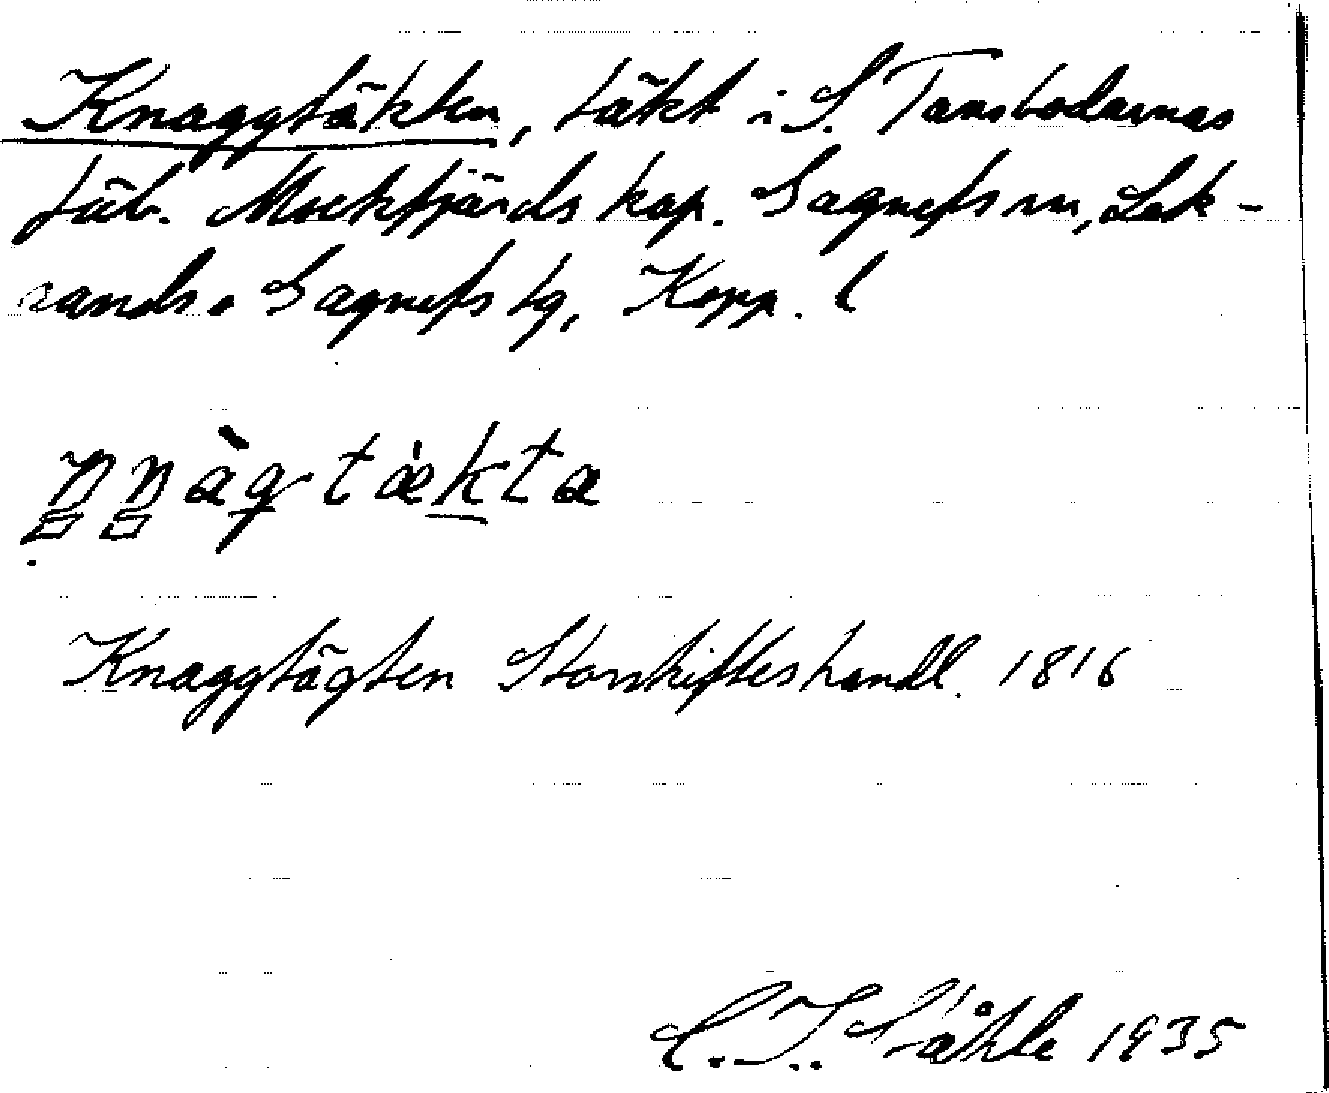 Knaggtäkten, täkt i S. Tansbodarnas
fäb. Mockfjärds kap. Gagnefs sn, Lek-
sands o Gagnefs tg, Kopp. l
Knaggtägten Storskifteshandl. 1816
C. I. Ståhle 1935